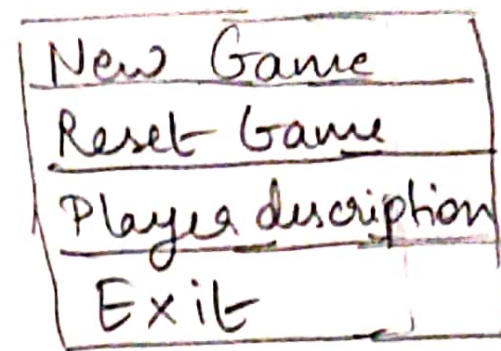 New Game
Reset Game
Player description
Exit